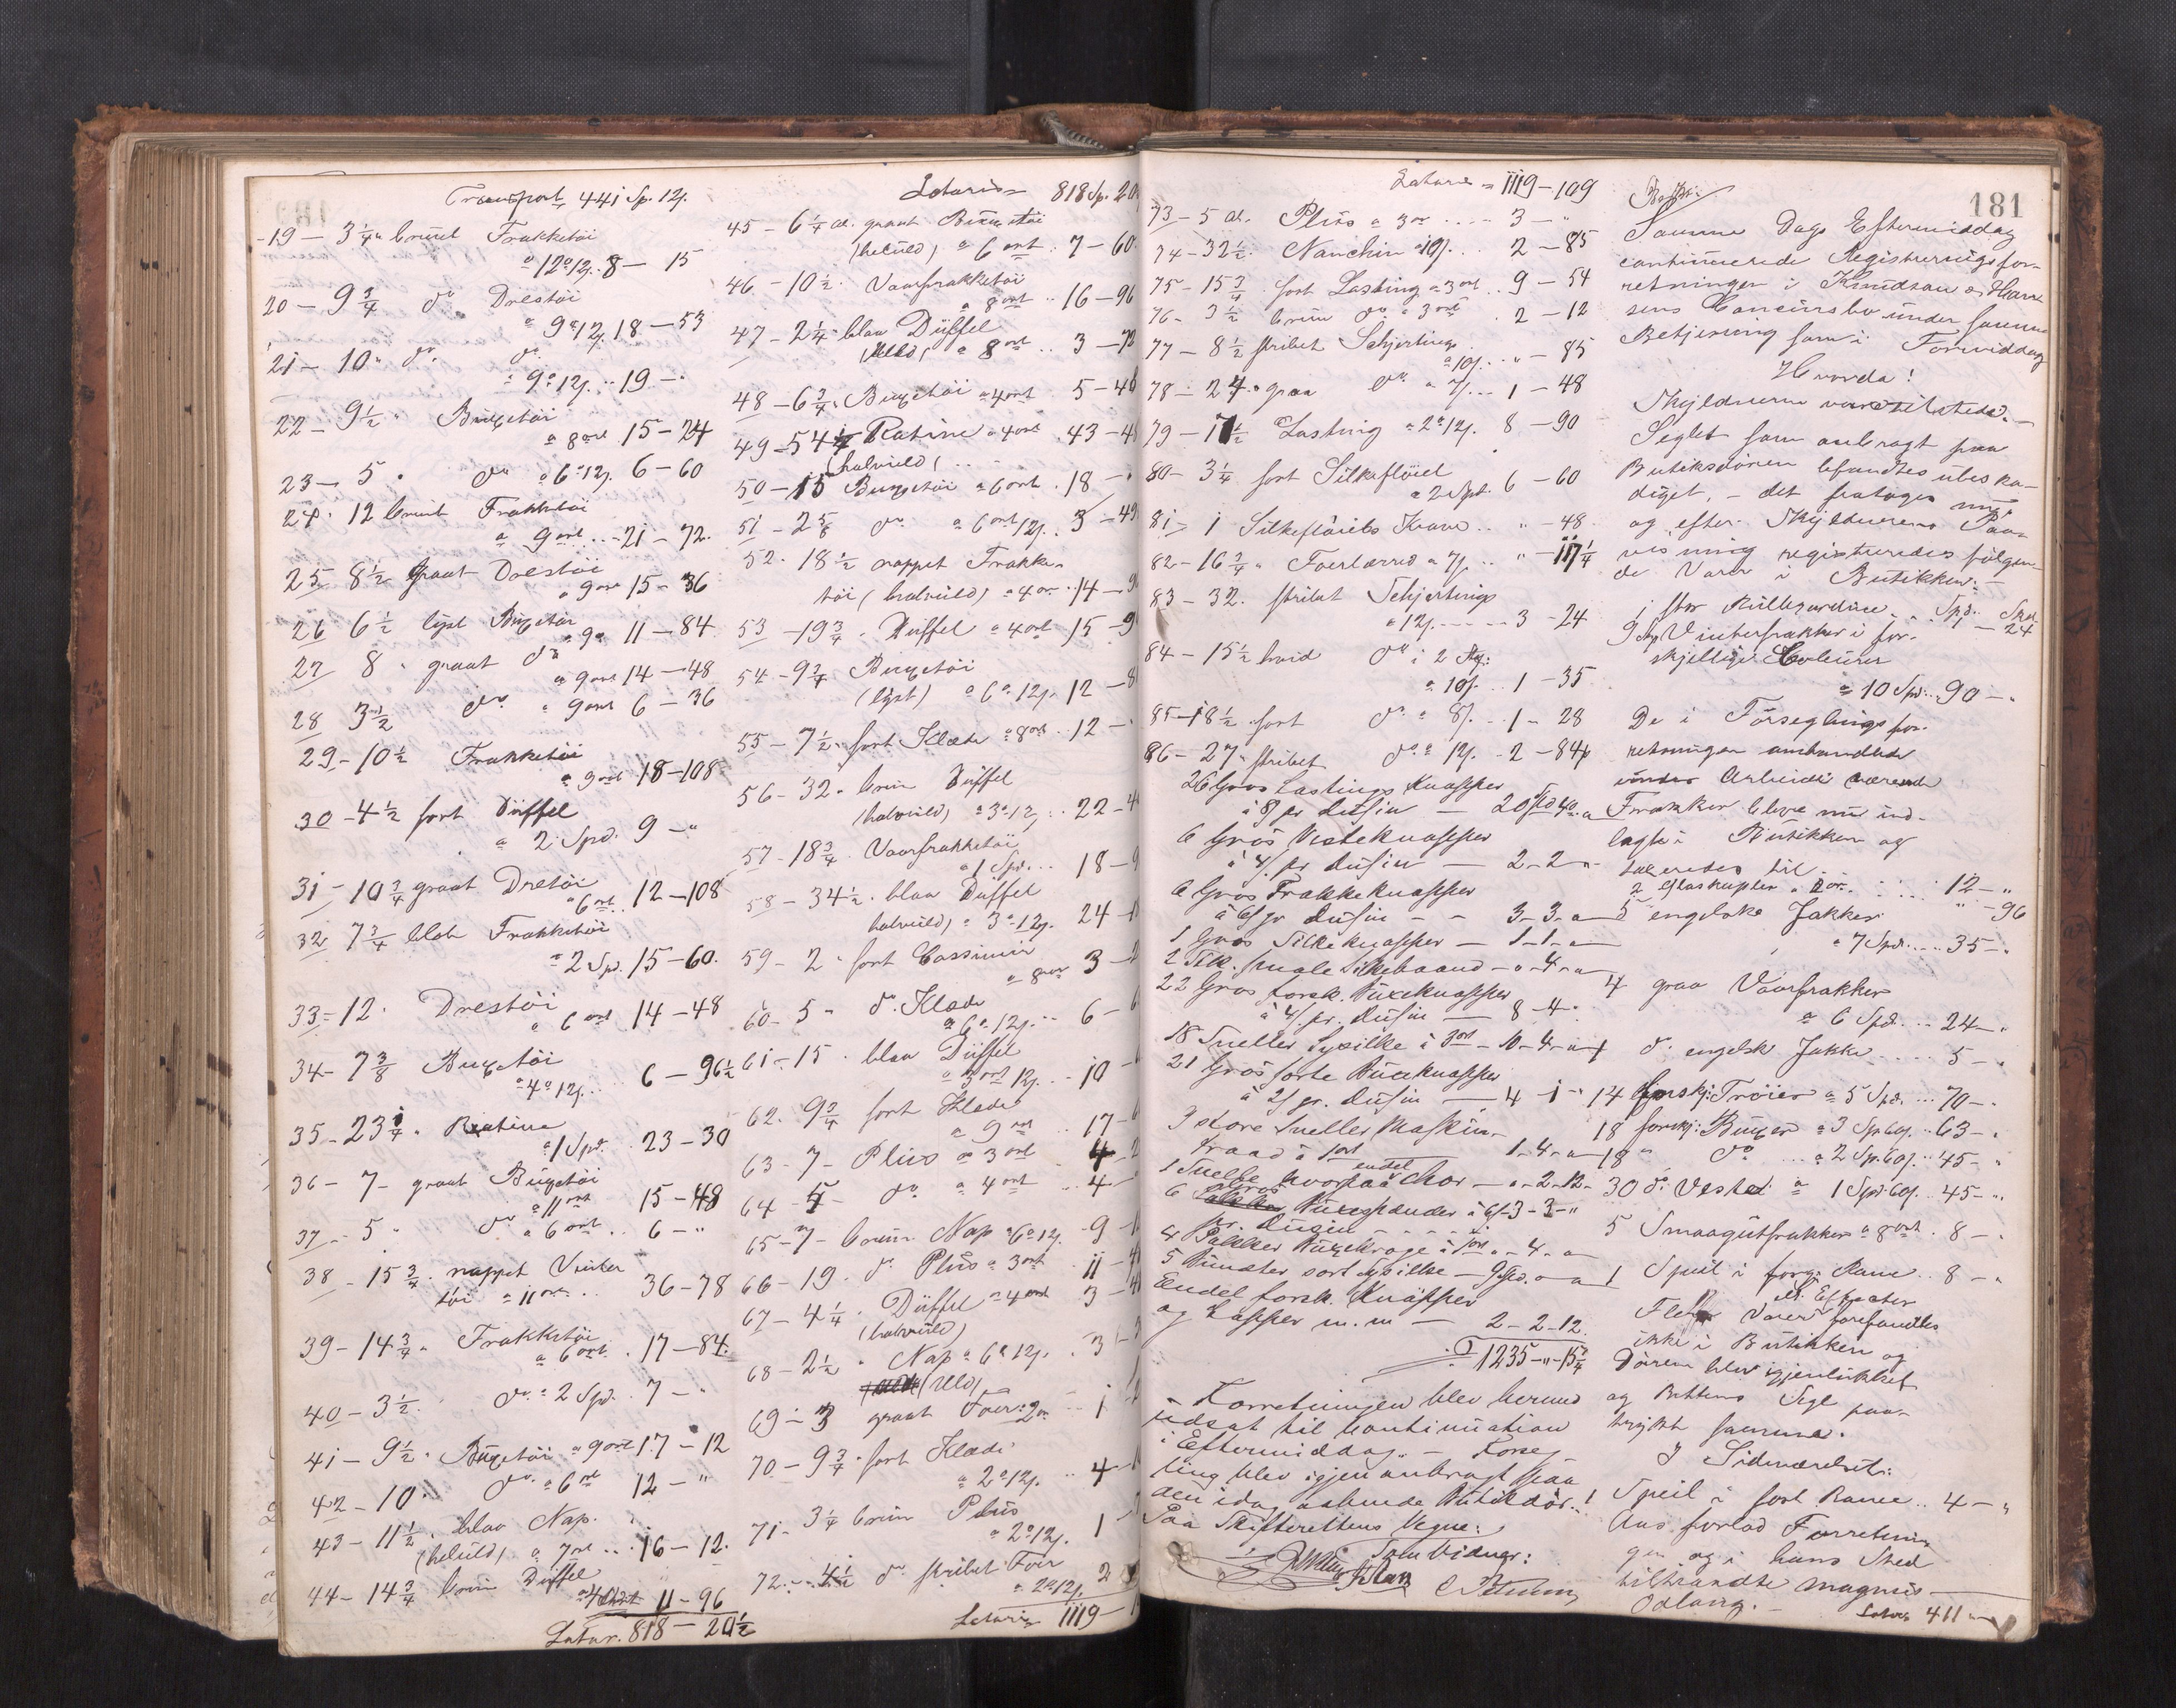 Transport 441 Sp. 12 ſ.
19 – 3 1/4 " bruunt Frakketöi
a 12 a 12 ſ. 8 – 15
20 – 9 3/4 do Drestöi
a 9 a 12 ſ. 18 – 53
21 – 10 " do do
a 9 a 12 ſ. 19 – "
22 – 9 1/2 " Buxetöi
a 8 ort 15 – 24
23 – 5 " do a 6 a 12 ſ. 6 – 60
24 " 12 bruunt Frakketöi
a 9 ort 21 – 72
25 8 1/2 graat Drestöi
a 9 ort 15 – 36
26 6 1/2 lyst Buxetöi
a 9 a 11 – 84
27 8 " graat do
a 9 ort 14 – 48
28 3 1/2 do a 9 ort 6 – 36
29 – 10 1/2 Frakketöi
a 9 ort 18 – 108
30 – 4 1/2 sort Düffel
a 2 Spd. 9 – "
31 – 10 3/4 graat Drestöi
a 6 ort 12 – 108
32 7 3/4 blaa Frakketöi
a 2 Sp. 15 – 60
33 – 12 " Drestöi
a 6 ort 14 – 48
34 – 7 3/8 Buxetöi
a 4 a 12 ſ. 6 – 96 1/2
35 – 23 1/4 " Ratine
a 1 Spd. 23 – 30
36 – 7 – graat Buxetöi
a 11 ort 15 – 48
37 – 5 " do a 6 ort 6 – "
38 – 15 3/4 nappet Vinter
töi a 11 ort 36 – 78
39 – 14 3/4 " Frakketöi
a 6 ort 17 – 84
40 – 3 1/2 do a 2 Spd. 7 – "
41 – 9 1/2 " Buxetöi a 9 ort 17 – 12
42 – 10 " do a 6 ort 12 – "
43 – 11 1/2 " blaa Nap.
(heluld) a 7 ort 16 – 12
44 – 14 3/4 brun Düffel
a 4 ort 11 – 96
Latus. 818 – 20 1/2
Lateris 818 Sp. 20
45 – 6 1/4 al. graat Buxetöi
(heluld) a 6 ort 7 – 60
46 – 10 1/2 " Vaarfrakketöi
a 8 ort 16 – 96
47 – 2 1/4 " blaa Düffel
(Uld) a 8 ort 3 – 72
48 – 6 3/4 " Buxetöi a 4 ort 5 – 48
49 – 54 1/4 Ratine a 4 ort 43 – 4
(halvuld)
50 – 15 Buxetöi a 6 ort 18 –
51 – 2 5/8 do a 6 ort 12 ſ. 3 – 49
52 " 18 1/2 nappet Frakke-
töi (halvuld) a 4 ort 14 –
53 – 19 3/4 " Düffel a 4 ort 15 – 9
54 – 9 3/4 Buxetöi
(lyst) a 6 a 12 ſ. 12 – 8
55 – 7 1/2 " sort Klæde a 8 ort 12 –
56 – 32 " brun Düffel
(halvuld) a 3 a 12 22 – 4
57 – 18 3/4 " Vaarfrakketöi
a 1 Spd. 18 – 9
58 – 34 1/2 " blaa Düffel
halvuld) a 3 a 12 ſ. 24 –
59 – 2 " sort Cassimir
a 8 ort 3 –
60 – 5 " do Klæde
a 6 a 12 ſ. 6 –
61 – 15 " blaa Düffel
a 3 ort 12 ſ. 10
62 " 9 3/4 sort Klæde
a 9 ort 17 –
63 – 7 – Plüs a 3 ort 4 – 2
64 – 5 – do a 4 ort 4 –
65 – 7 – brun Nap a 6 a 12 ſ. 9 –
66 – 19 " do Plüs a 3 ort 11 – 4
67 – 4 1/4 " Düffel a 4 ort 3 –
(halvuld)
68 – 2 1/2 " Nap a 6 a 12 ſ. 3 –
(Uld)
69 – 3 graat Foer a 2 ort 1
70 – 9 3/4 " sort Klæde
a 2 a 12 ſ. 4 –
71 – 3 1/4 brun Plüs
a 2 a 12 ſ. 1
72 – 4 1/2 do stribet Foer
a 2 a 12 ſ. 2
Lateris 1119 –
Lateris 1119 – 109
73 – 5 al. Plüs a 3 ort 3 – "
74 – 32 1/2 " Nanchin a 10 ſ. 2 – 85
75 – 15 3/4 sort Lasting a 3 ort 9 – 54
76 – 3 1/2 brun do a 3 ort 2 – 12
77 – 8 1/2 stribet Schjerting
a 10 ſ. " – 85
78 – 24 " graa do a 7 ſ. 1 – 48
79 – 17 1/2 Lasting a 2 a 12 ſ. 8 – 90
80 – 3 1/4 sort Silkefløiel
a 2 Spd. 6 – 60
81 – 1 Silkefløiels Krave " – 48
82 – 16 3/4 " Foerlærred a 7 ſ. " – 117 1/4
83 – 32 " stribet Schjerting
a 12 ſ. 3 – 24
84 – 15 1/2 hvid do i 2 Stk:
a 10 ſ. 1 – 35
85 – 18 1/2 sort do a 8 ſ. 1 – 28
86 – 27 " stribet do a 12 ſ. 2 – 84
26 Gros Lastings Knapper
à 8 ſ pr Dusin — 20 Spd 4 ort "
6 Gros Vesteknapper
à 4 ſ. pr Dusin — 2 – 2 – "
6 Gros Frakkeknapper
à 6 ſ pr Dusin – – 3 – 3 – "
1 Gros Silkeknapper — 1 – 1 – "
2 Stk. smale Silkebaand – " – 4 – "
22 Gros forsk. Buxeknapper
à 4 ſ. pr. Dusin — 8 – 4 – "
18 Sneller Sysilke à 3 ort – 10 – 4 – "
21 Gros sorte Buxeknapper
à 2 ſ pr. Dusin — 4 – 1 – "
9 store Sneller Maskin-
traad à 1 ort 1 – 4 – "
1 Snelle hvorpaa endel Chor – " – 2 – 12
6 Gros Buxespænder à 6 ſ – 3 – 3 – "
pr. Dusin
4 Pakker Buxekroge à 1 ort " – 4 – "
5 Bundter sort sysilke — 9 Spd. " – "
Endel forsk. Knapper
og Lapper m. m — 2 – 2 – 12
1235 – " – 15 3/4
Forretningen blev herved
udsat til Continuation
i Eftermiddag. – Forseg-
ling blev igjen anbragt paa
den idag aabnede Butikdör.
Paa Skifterettens Vegne:
Som Vidner:
C Petersen
181
Samme Dags Eftermiddag
continuerede Registreringsfor-
retningen i Knudsen & Han-
sens Concursbo under samme
Betjening som i Formiddag
Hvorda!
Skyldnerne var tilstede. –
Seglet som anbragt paa
Butiksdören befandtes ubeska-
diget, – det fratoges nu
og efter Skyldnerens Paa-
visning registreredes følgen-
de Varer i Butikken: –
1 stor Rullegardine Spd. Skl.
1 – 24
9 Stk Vinterfrakker i for-
skjellige Coleurer
a 10 Spd. 90 – "
De i Forseglingsfor-
retningen omhandlede
under Arbeide værende
Frakker bleve nu ind-
lagte i Butikken og
taxeredes til 12 – "
2 Glaskupler a 2 ort " – 96
5 engelske Jakker
a 7 Spd. 35 – "
4 graa Vaarfrakker
a 6 Spd. 24 – "
1 do engelsk Jakke 5 – "
14 forskj: Trøier a 5 Spd. 70 – "
18 forskj: Buxer a 3 Sp 60 ſ. 63 – "
18 " do a 2 Sp. 60 ſ. 45 – "
30 do Veste a 1 Spd 60 ſ. 45 – "
5 Smaagutfrakker a 8 ort 8 – "
1 Speil i forg. Rame 8 – "
el. Effecter
Flere Varer forefandtes
ikke i Butikken og
Dören blev igjenlukket
og Rettens Segl paa-
trykt samme.
I Sideværelset:
1 Speil i sort Rame 4 – "
Aus. forlod Forretnin
gen og i hans Sted
tiltraadte Magnus
Odlaug. –
Latus 411